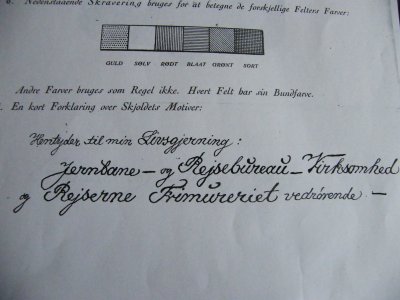 6. Nedenstaaende Skravering bruges for at betegne de forskjellige Felters Farver:
GULD SØLV RØDT BLAAT GRØNT SORT
Andre Farver bruges som Regel ikke. Hvert Felt har sin Bundfarve.
En kort Forklaring over Skjoldets Motiver:
Hentyder til min Livsgjerning:
Jernbane - og Rejsebureau - Virksomhed
og Rejserne Frimureriet vedrørende -